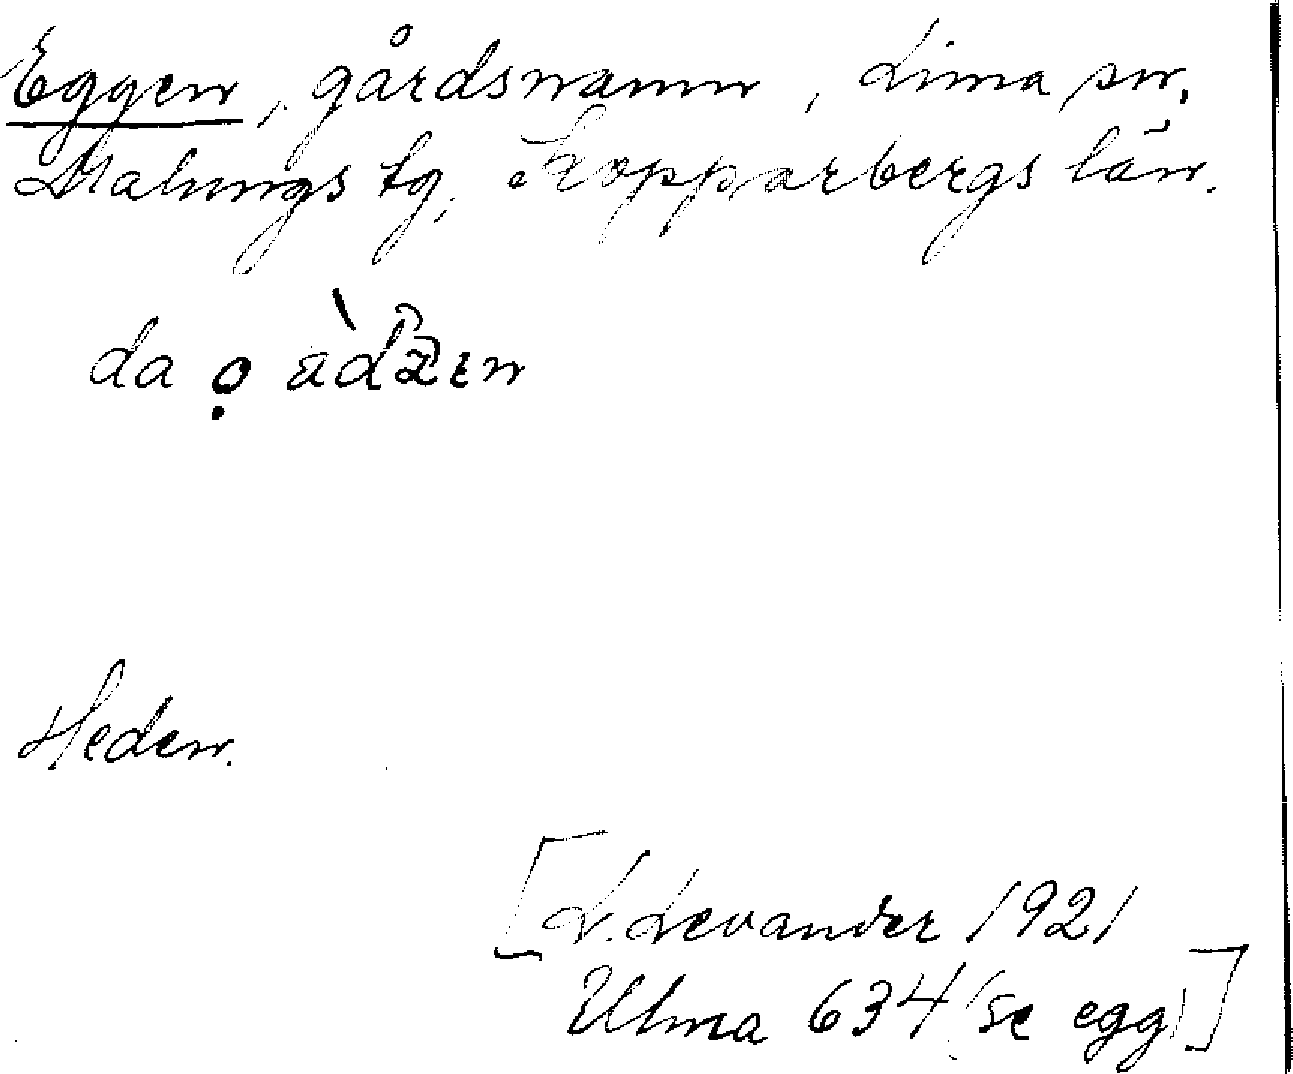 Eggen, gårdsnamn, Lima sn.
Malungs tg, Kopparbergs län.
da
Heden.
[L. Levander 1921
Ulma 634 (se egg)]